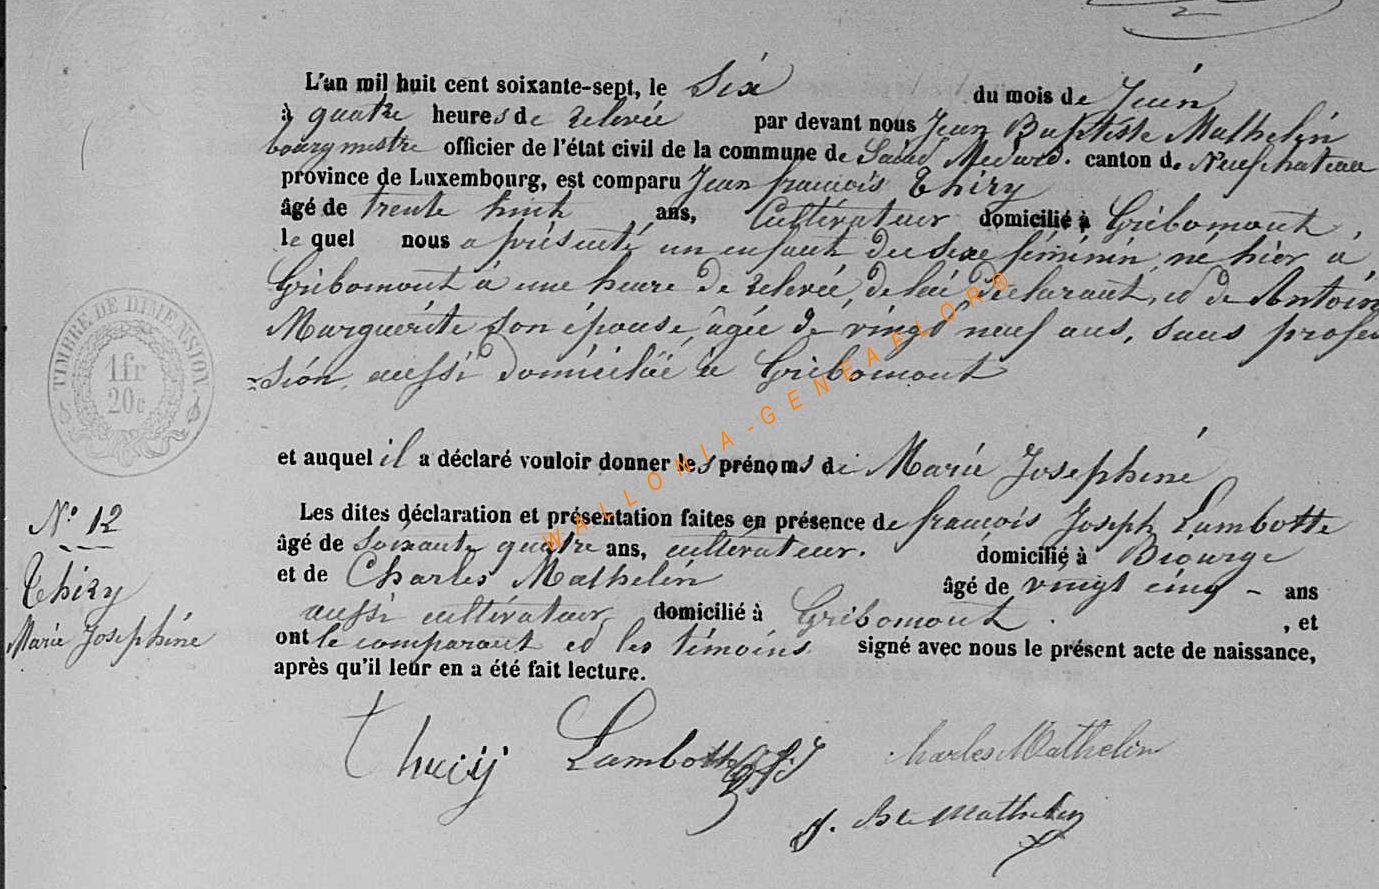 L'an mil huit cent soixante-sept, le Six du mois de Juin
à quatre heures de relevée par devant nous Jean Baptiste Mathelin
bourgmestre officier de l'état civil de la commune de Saint Médard. canton de Neufchateau
province de Luxembourg, est comparu Jean françois Thiry
âgé de trente huit ans, Cultivateur domicilié à Gribomont,
le quel nous a présenté un enfant du sexe féminin né hier à
Gribomont à une heure de relevée, de lui déclarant, et de Antoine
Marguerite son épouse, âgée de vingt neuf ans, sans profes
=sion, aussi domiciliée à Gribomont
et auquel il a déclaré vouloir donner les prénoms de Marie Josephine
Les dites déclaration et présentation faites en présence de françois Joseph Lambotte
âgé de soixante quatre ans, cultivateur. domicilié à Biourge
et de Charles Mathelin âgé de vingt cinq - ans
aussi cultivateur, domicilié à Gribomont. , et
ont le comparant et les témoins signé avec nous le présent acte de naissance,
après qu'il leur en a été fait lecture.
TIMBRE DE DIMENSION.
1fr
20c
N° 12
Thiry
Marie Josephine
Thiry Lambotte f. J Charles Mathelin
J. Bte Mathelin
WALLONIA-GENEAFLOR®